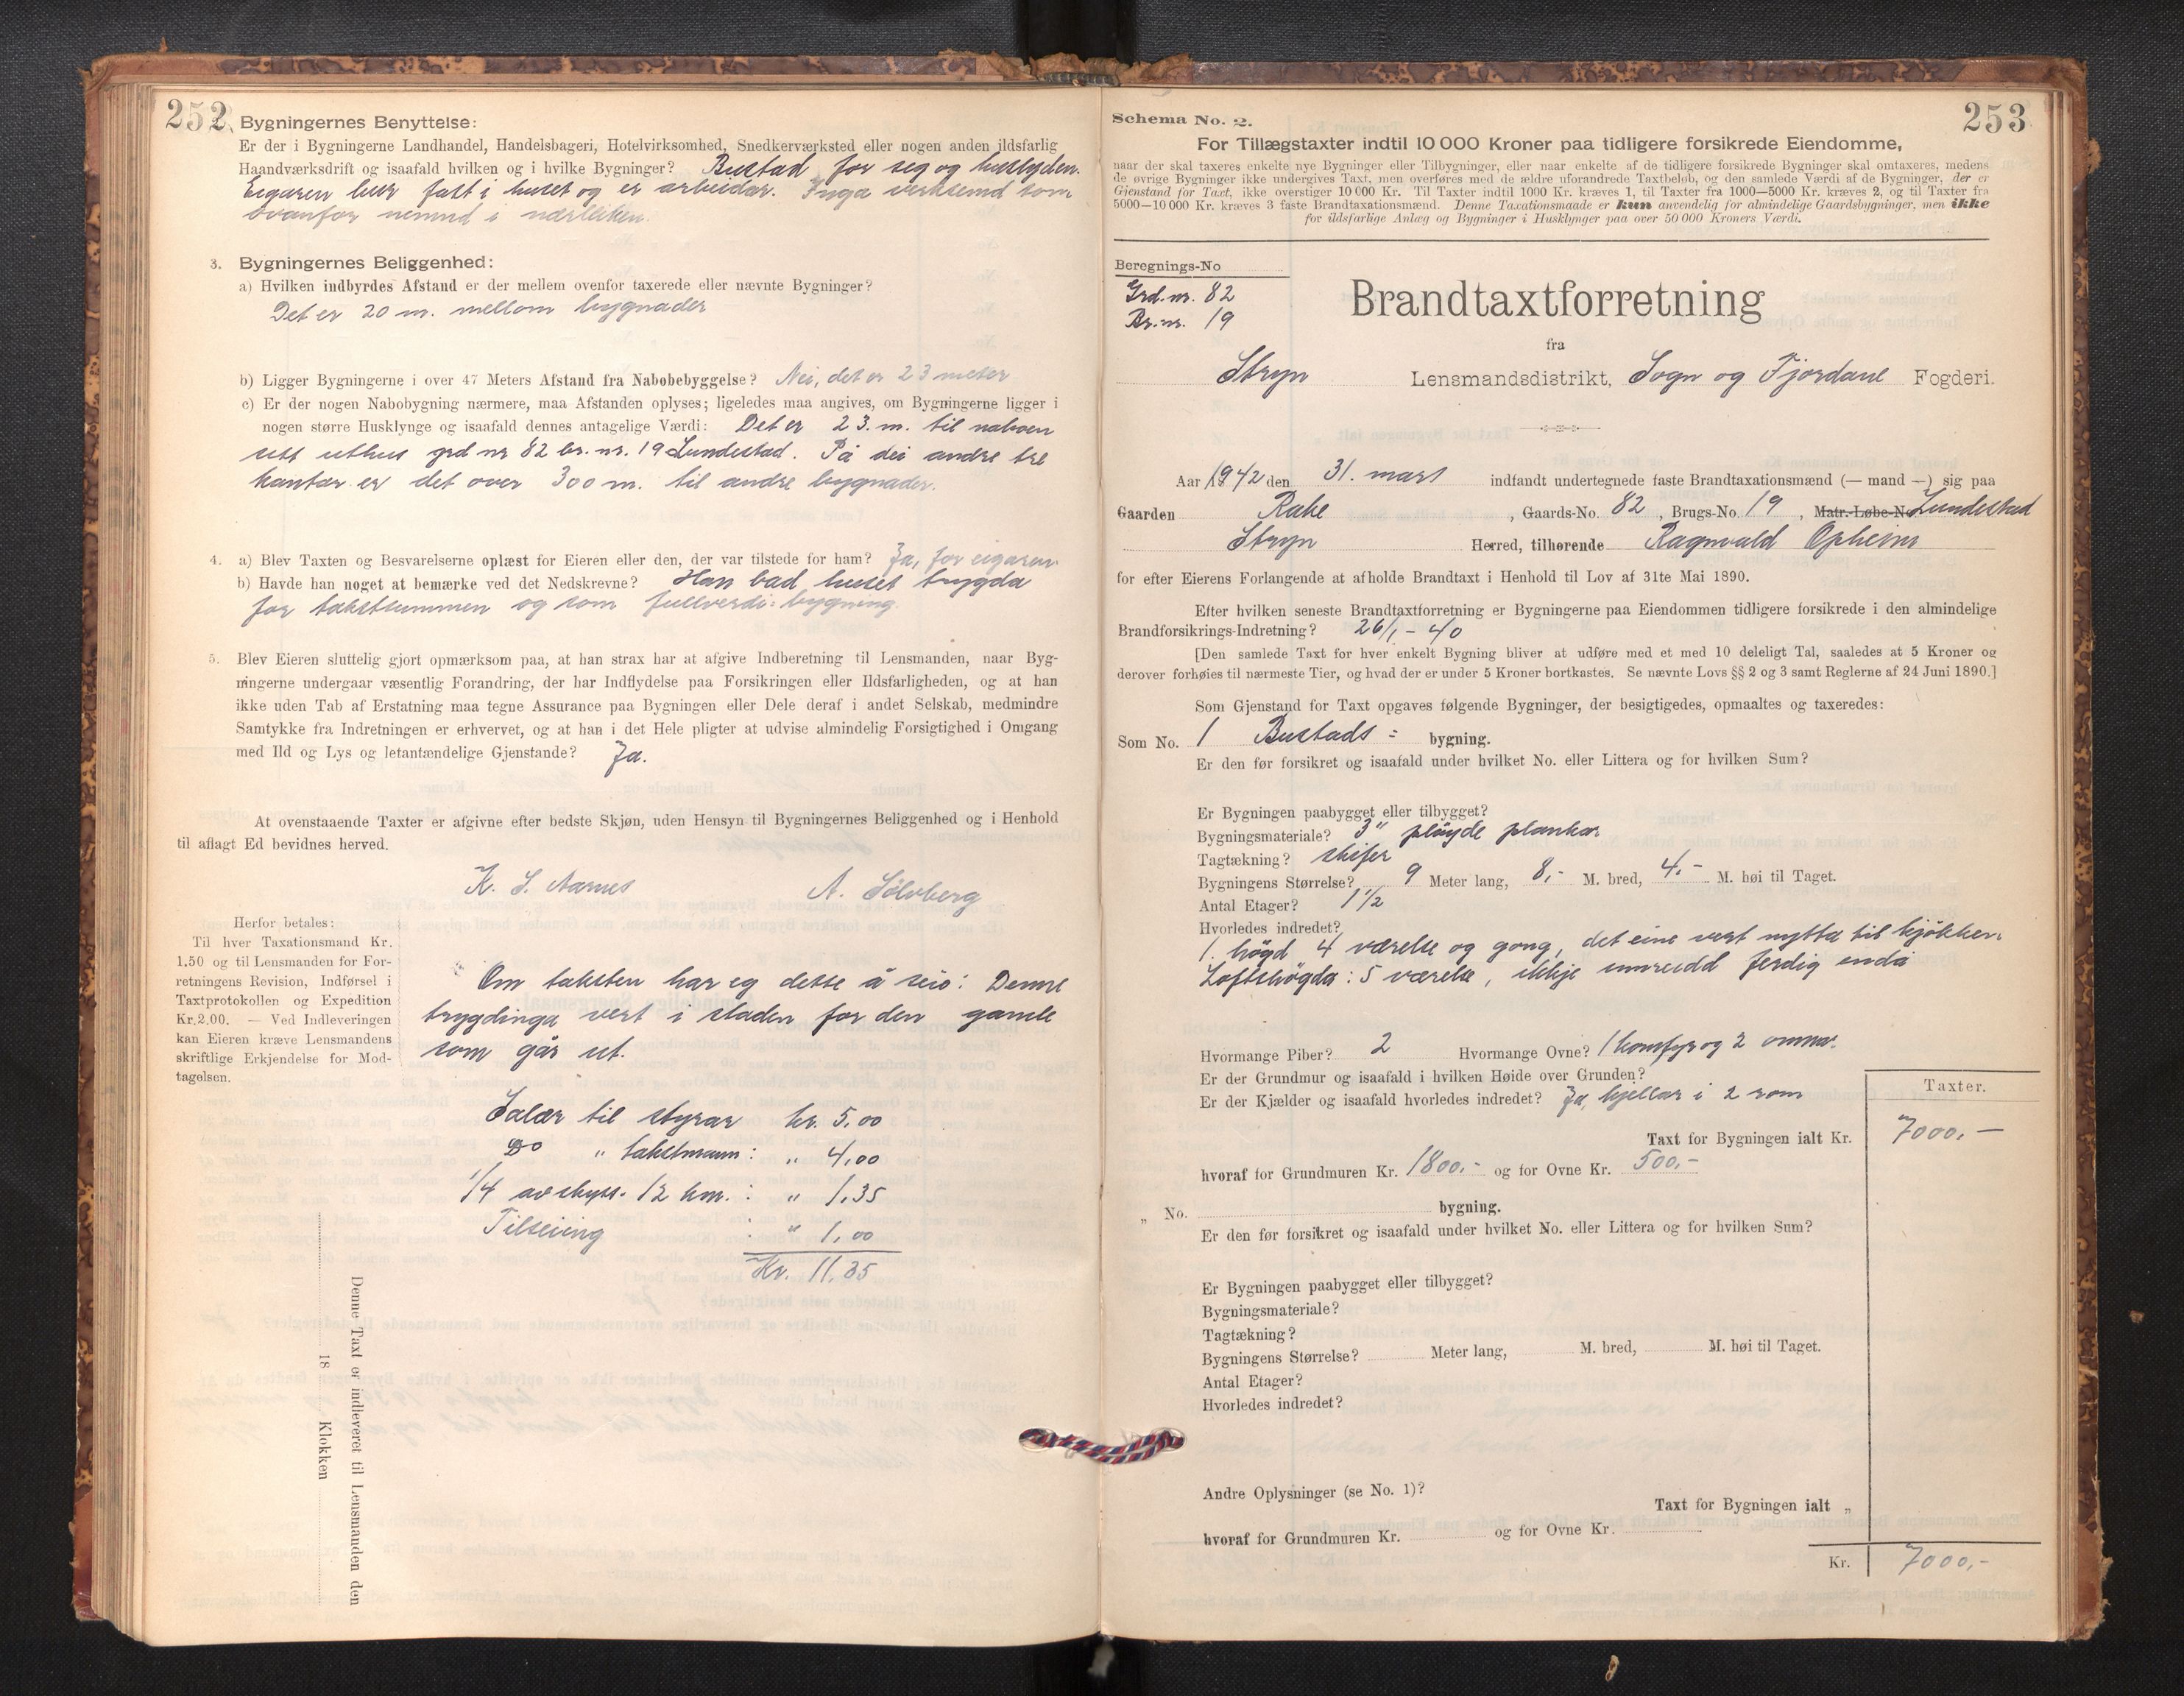 252
2. Bygningernes Benyttelse:
Er der i Bygningerne Landhandel, Handelsbageri, Hotelvirksomhed, Snedkerværksted eller nogen anden ildsfarlig
Haandværksdrift og isaafald hvilken og i hvilke Bygninger? Bustad for seg og huslyden.
Eigaren bur fast i huset og er arbeidar. Inga verksemd som
ovanfor nemnd i nærleiken.
3. Bygningernes Beliggenhed:
a) Hvilken indbyrdes Afstand er der mellem ovenfor taxerede eller nævnte Bygninger?
Det er 20 m. mellom bygnader
b) Ligger Bygningerne i over 47 Meters Afstand fra Nabobebyggelse? Nei, det er 23 meter
c) Er der nogen Nabobygning nærmere, maa Afstanden oplyses; ligeledes maa angives, om Bygningerne ligger i
nogen større Husklynge og isaafald dennes antagelige Værdi: Det er 23. m. til naboen
sitt uthus grd nr 82 br. nr. 19 Lundestad. På dei andre tre
kantar er det over 300 m. til andre bygnader.
4. a) Blev Taxten og Besvarelserne oplæst for Eieren eller den, der var tilstede for ham? Ja, for eigaren
b) Havde han noget at bemærke ved det Nedskrevne? Han bad huset trygda
for takstsummen og som fullverdi: bygning.
5. Blev Eieren sluttelig gjort opmærksom paa, at han strax har at afgive Indberetning til Lensmanden, naar Byg-
ningerne undergaar væsentlig Forandring, der har Indflydelse paa Forsikringen eller Ildsfarligheden, og at han
ikke uden Tab af Erstatning maa tegne Assurance paa Bygningen eller Dele deraf i andet Selskab, medmindre
Samtykke fra Indretningen er erhvervet, og at han i det Hele pligter at udvise almindelig Forsigtighed i Omgang
med Ild og Lys og letantændelige Gjenstande? Ja.
At ovenstaaende Taxter er afgivne efter bedste Skjøn, uden Hensyn til Bygningernes Beliggenhed og i Henhold
til aflagt Ed bevidnes herved.
K. S. Aarnes A. Sölvberg
Herfor betales:
Til hver Taxationsmand Kr.
1.50 og til Lensmanden for For-
retningens Revision, Indførsel i
Taxtprotokollen og Expedition
Kr. 2.00. — Ved Indleveringen
kan Eieren kræve Lensmandens
skriftlige Erkjendelse for Mod-
tagelsen.
Om taksten har eg dette å seia: Denne
trygdinga vert i staden for den gamle
som går ut.
Salær til styrar kr. 5,00
Do " takstmann: " 4,00
1/4 av skyss. 12 km. : " 1,35
Tilseiing : " 1,00
Kr. 11,35
Denne Taxt er indleveret til Lensmanden den
18 Klokken
253
Schema No. 2.
For Tillægstaxter indtil 10 000 Kroner paa tidligere forsikrede Eiendomme,
naar der skal taxeres enkelte nye Bygninger eller Tilbygninger, eller naar enkelte af de tidligere forsikrede Bygninger skal omtaxeres, medens
de øvrige Bygninger ikke undergives Taxt, men overføres med de ældre uforandrede Taxtbeløb, og den samlede Værdi af de Bygninger, der er
Gjenstand for Taxt, ikke overstiger 10 000 Kr. Til Taxter indtil 1000 Kr. kræves 1, til Taxter fra 1000—5000 Kr. kræves 2, og til Taxter fra
5000—10 000 Kr. kræves 3 faste Brandtaxationsmænd. Denne Taxationsmaade er kun anvendelig for almindelige Gaardsbygninger, men ikke
for ildsfarlige Anlæg og Bygninger i Husklynger paa over 50 000 Kroners Værdi.
Beregnings-No
Grd. nr. 82
Br. nr. 19
Brandtaxtforretning
fra
Stryn Lensmandsdistrikt, Sogn og Fjordane Fogderi.
Aar 1942 den 31. mars indfandt undertegnede faste Brandtaxationsmænd (— mand —) sig paa
Gaarden Rake, Gaards-No. 82, Brugs-No. 19, Matr.-Løbe-No Lundestad
Stryn Herred, tilhørende Ragnvald Opheim
for efter Eierens Forlangende at afholde Brandtaxt i Henhold til Lov af 31te Mai 1890.
Efter hvilken seneste Brandtaxtforretning er Bygningerne paa Eiendommen tidligere forsikrede i den almindelige
Brandforsikrings-Indretning? 26/1 - 40
[Den samlede Taxt for hver enkelt Bygning bliver at udføre med et med 10 deleligt Tal, saaledes at 5 Kroner og
derover forhøies til nærmeste Tier, og hvad der er under 5 Kroner bortkastes. Se nævnte Lovs §§ 2 og 3 samt Reglerne af 24 Juni 1890.]
Som Gjenstand for Taxt opgaves følgende Bygninger, der besigtigedes, opmaaltes og taxeredes:
Som No. 1 Bustads = bygning.
Er den før forsikret og isaafald under hvilket No. eller Littera og for hvilken Sum?
Er Bygningen paabygget eller tilbygget?
Bygningsmateriale? 3" pløyde plankar
Tagtækning? skifer
Bygningens Størrelse? 9 Meter lang, 8,- M. bred, 4,- M. høi til Taget.
Antal Etager? 1 1/2
Hvorledes indredet?
1. högd 4 værelse og gong, det eine vert nytta til kjökken.
Loftshögda: 5 værelse, ikkje innreidd ferdig endå
Hvormange Piber? 2 Hvormange Ovne? 1 komfyr og 2 omnar.
Er der Grundmur og isaafald i hvilken Høide over Grunden?
Er der Kjælder og isaafald hvorledes indredet? Ja, kjellar i 2 rom
Taxter.
Taxt for Bygningen ialt Kr. 7000,-
hvoraf for Grundmuren Kr. 1800,- og for Ovne Kr. 500,-
" No. bygning.
Er den før forsikret og isaafald under hvilket No. eller Littera og for hvilken Sum?
Er Bygningen paabygget eller tilbygget?
Bygningsmateriale?
Tagtækning?
Bygningens Størrelse? Meter lang, M. bred, M. høi til Taget.
Antal Etager?
Hvorledes indredet?
Andre Oplysninger (se No. 1)?
Taxt for Bygningen ialt "
hvoraf for Grundmuren Kr. og for Ovne Kr.
Kr. 7000,-